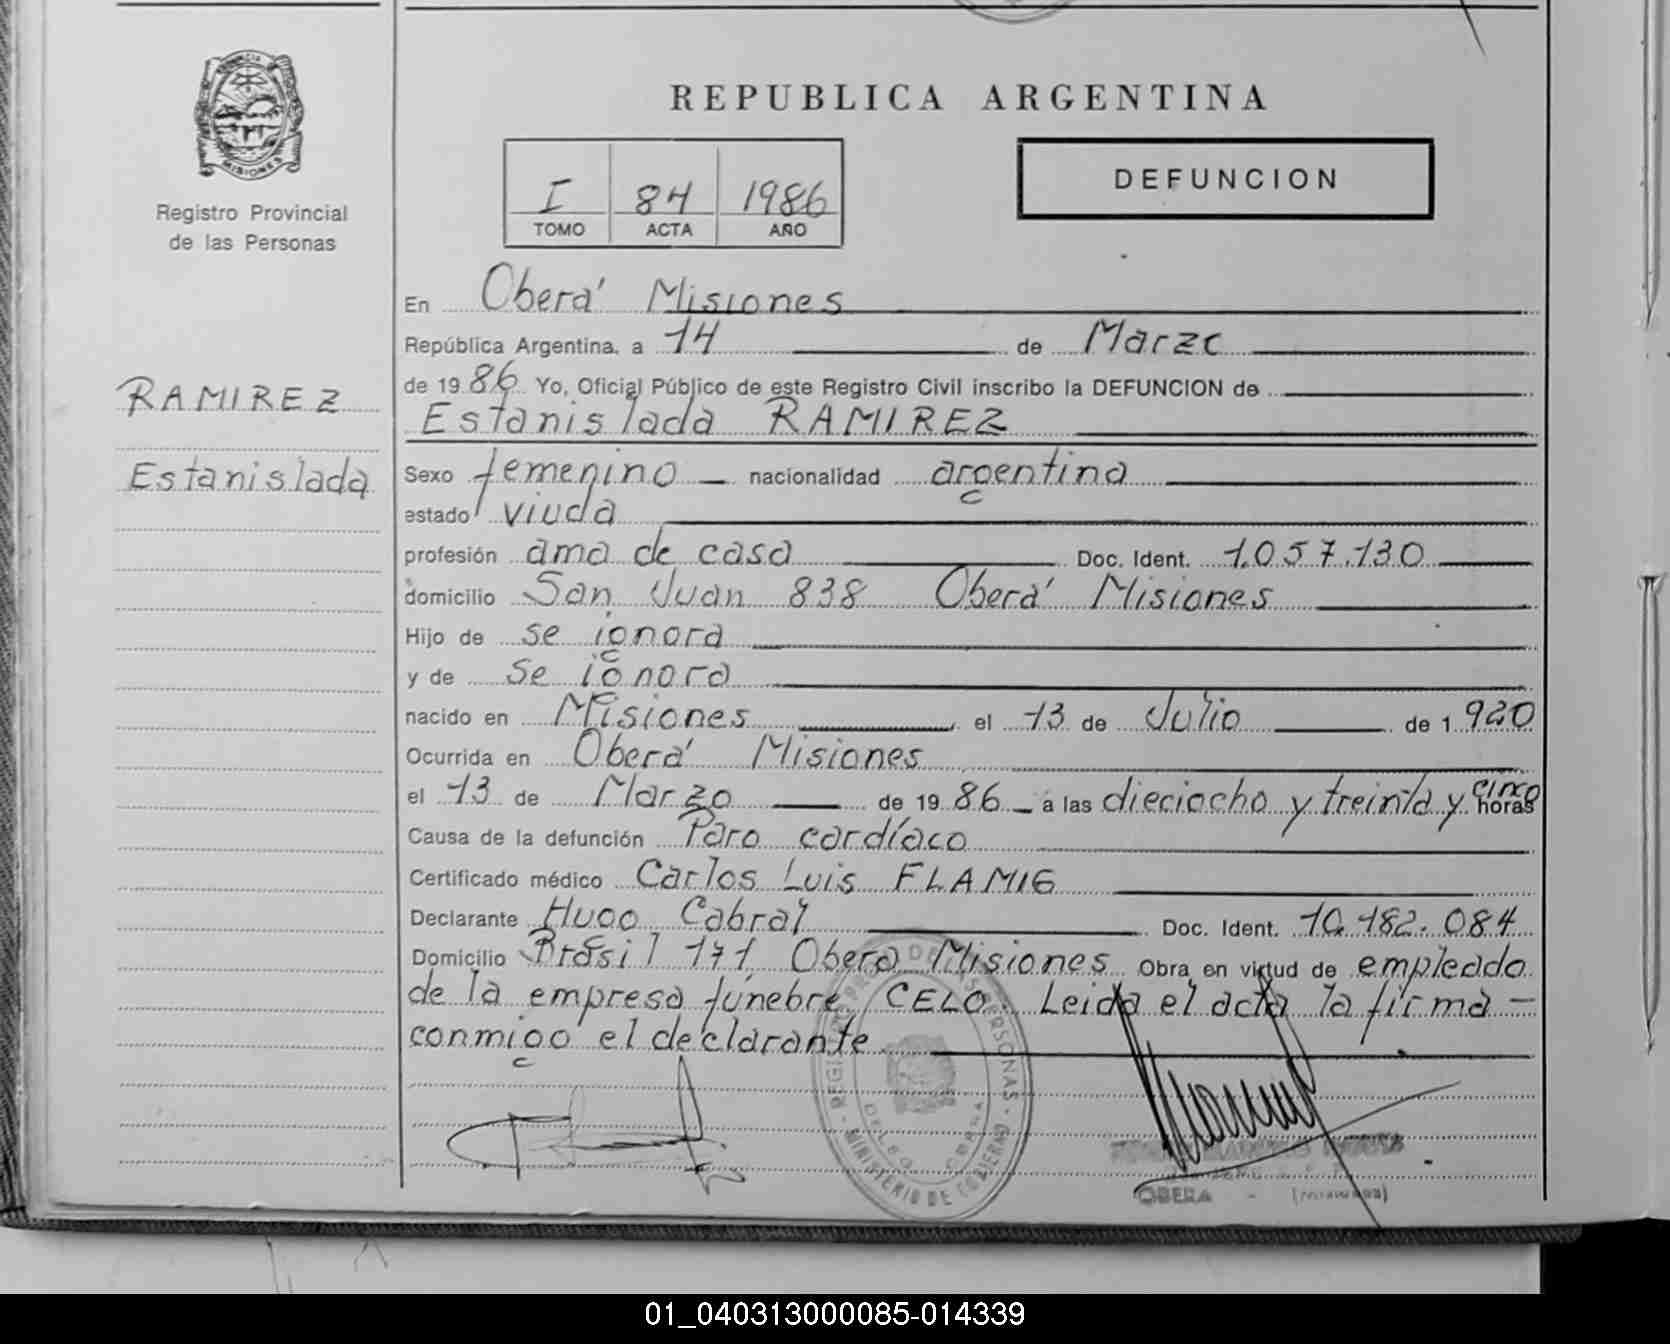 MISIONES
Registro Provincial
de las Personas
RAMIREZ
Estanislada
REPUBLICA ARGENTINA
I 84 1986
TOMO ACTA AÑO
DEFUNCION
En Oberá Misiones
República Argentina, a 14 de Marzo
de 1986 Yo, Oficial Público de este Registro Civil inscribo la DEFUNCION de
Estanislada RAMIREZ
Sexo femenino nacionalidad argentina
estado viuda
profesión ama de casa Doc. Ident. 1.057.130
domicilio San Juan 838 Oberá Misiones
Hijo de se ignora
y de se ignora
nacido en Misiones el 13 de Julio de 1920
Ocurrida en Oberá Misiones
el 13 de Marzo de 1986 a las dieciocho y treinta y cinco horas
Causa de la defunción Paro cardíaco
Certificado médico Carlos Luis FLAMIG
Declarante Hugo Cabral Doc. Ident. 10.182.084
Domicilio Brasil 171 Obera Misiones Obra en virtud de empleado
de la empresa fúnebre CELO. Leida el acta la firma
conmigo el declarante
MINISTERIO DE GOBIERNO
OBERA - (Misiones)
01_040313000085-014339